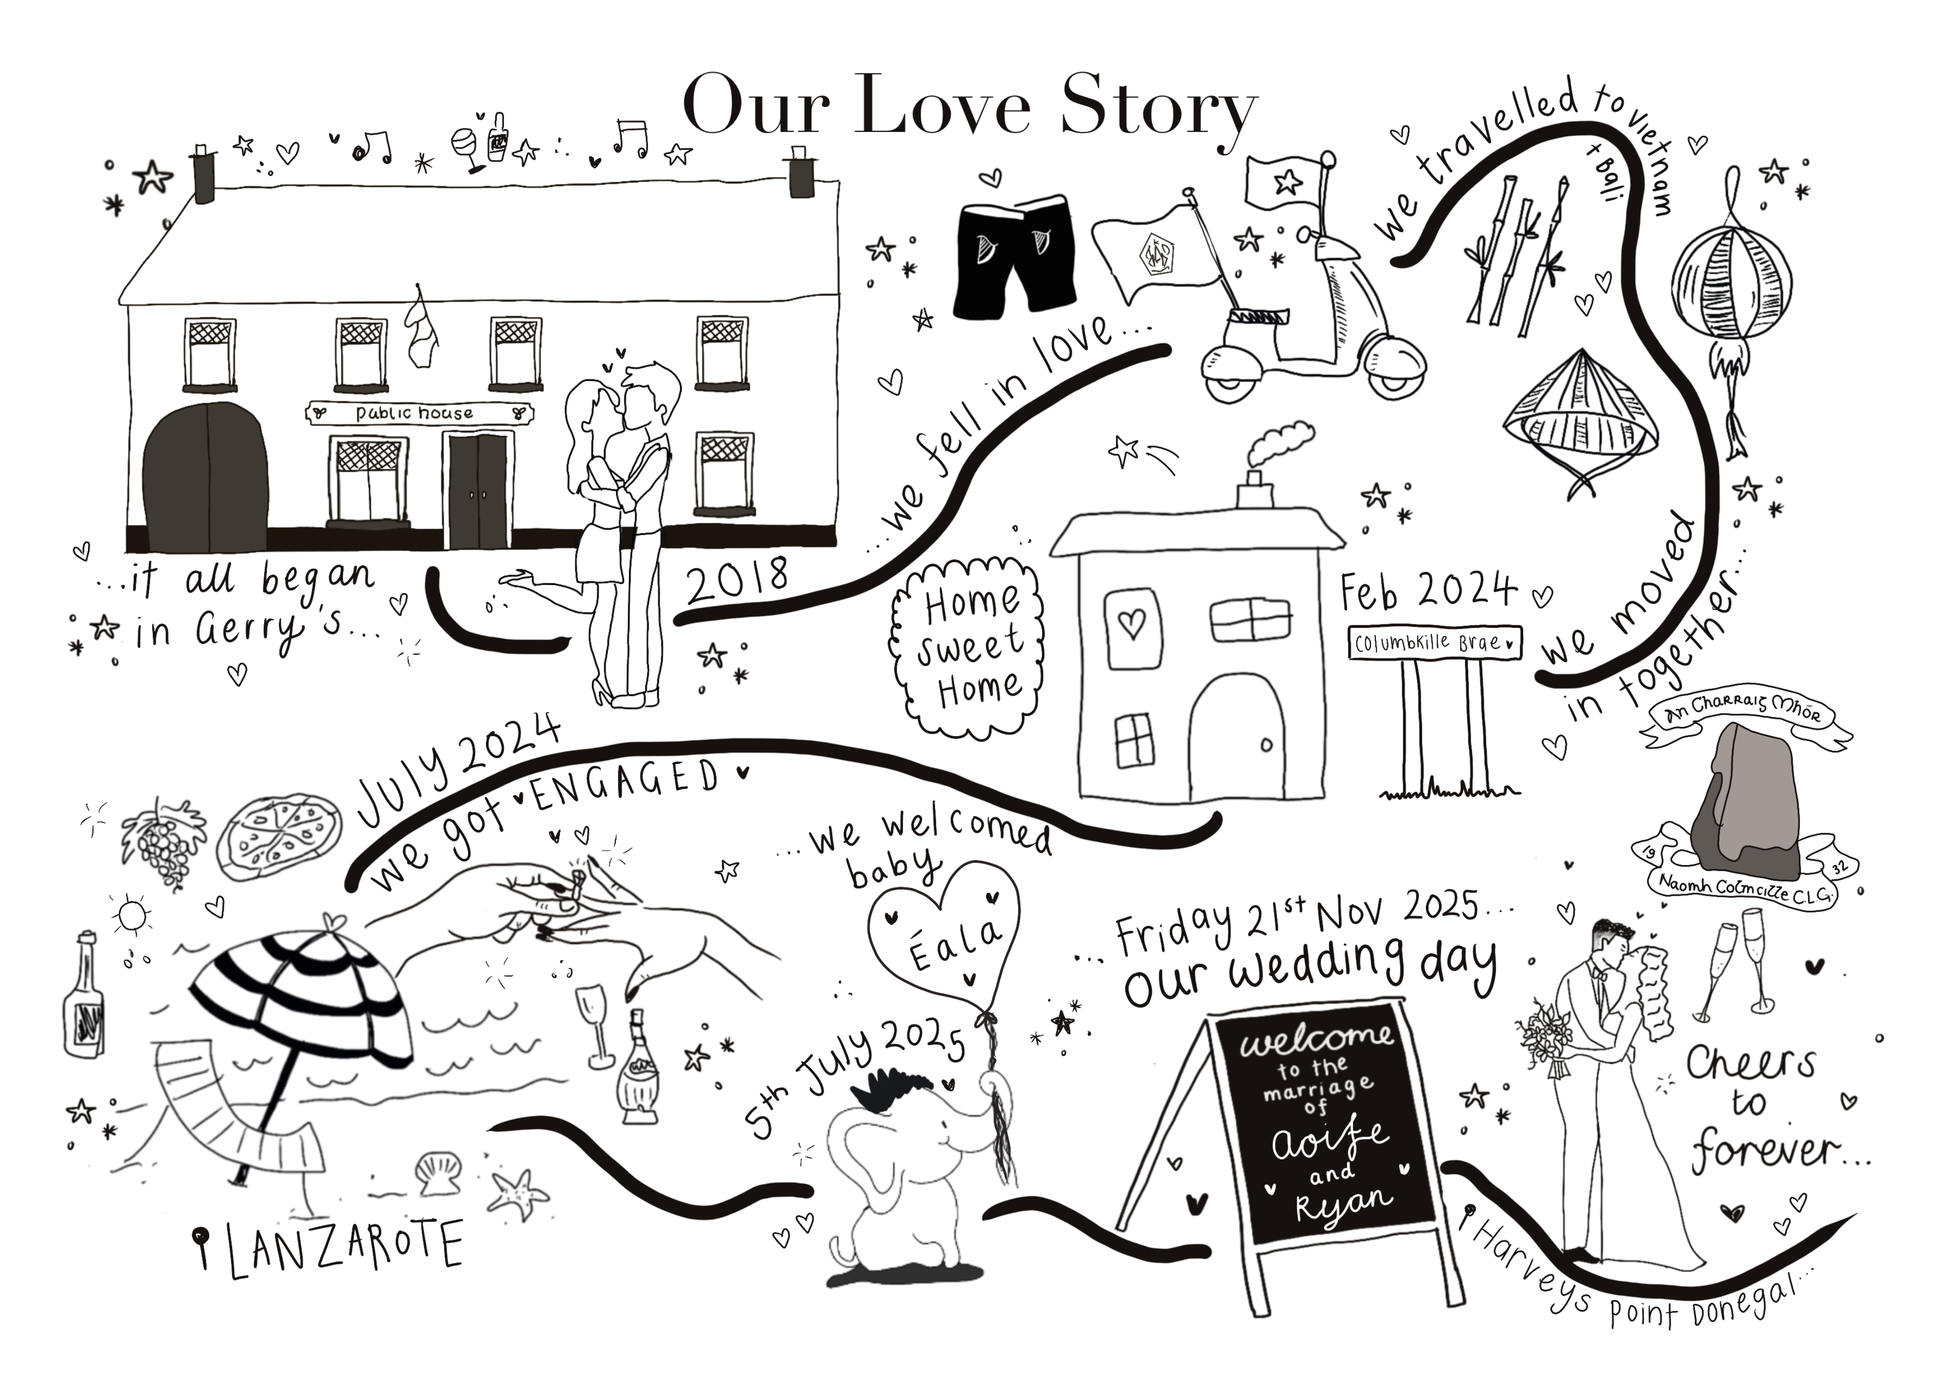 Our Love Story
public house
...it all began
in Gerry's...
2018
...we fell in love...
we travelled to Vietnam
+ Bali
we moved
in together...
Feb 2024
Columbkille Brae
Home
Sweet
Home
An Charraig Mhór
19 32
Naomh Colmcille C.L.G.
July 2024
we got ENGAGED
LANZAROTE
...we welcomed
baby
Éala
5th July 2025
...Friday 21st Nov 2025...
our wedding day
welcome
to the
marriage
of
Aoife
and
Ryan
Cheers
to
forever...
Harveys Point Donegal...